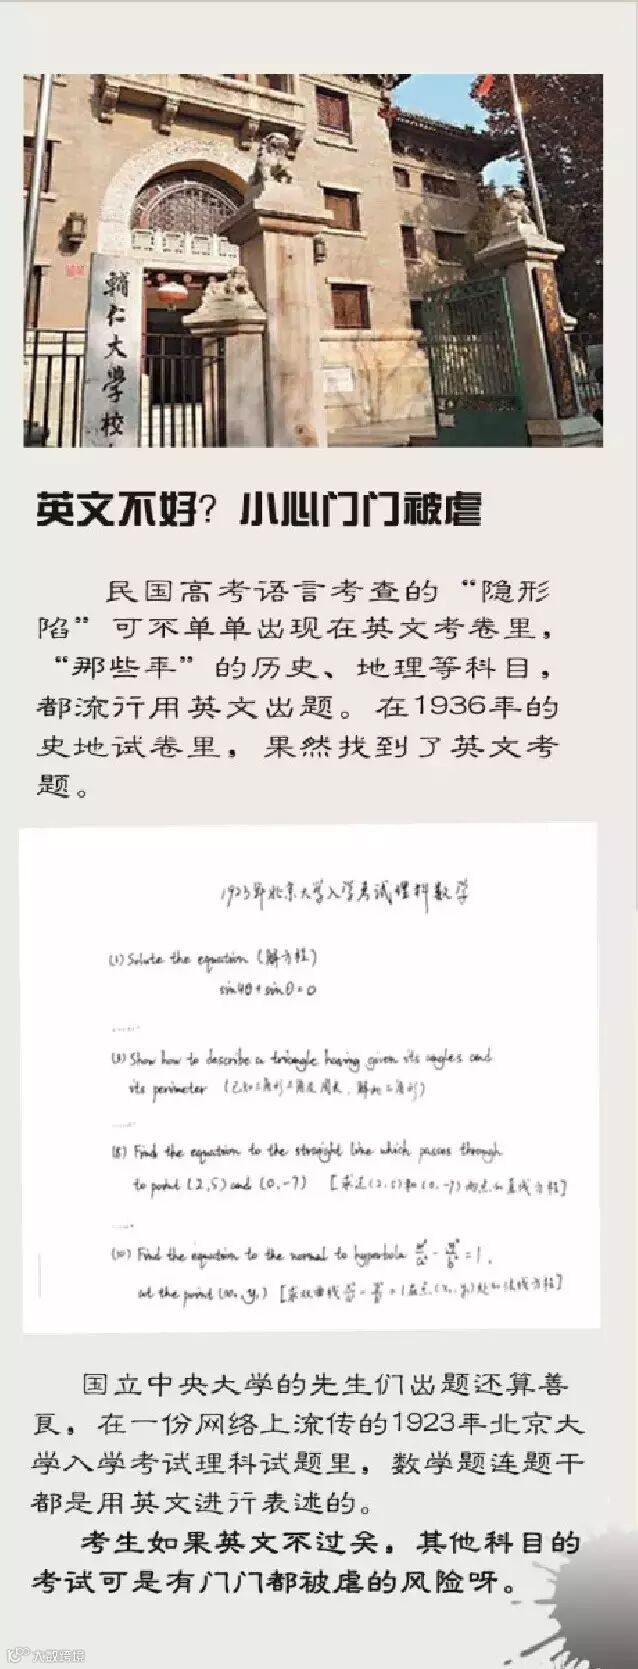 輔仁大學校
英文不好？小心门门被虐
民国高考语言考查的“隐形
陷”可不单单出现在英文考卷里，
“那些年”的历史、地理等科目，
都流行用英文出题。在1936年的
史地试卷里，果然找到了英文考
题。
1923年北京大学入学考试理科数学
(1) Solute the equation (解方程)
sin4θ+sinθ=0
......
(3) Show how to describe a triangle having given its angles and
its perimeter (已知三角形三角及周长，解此三角形)
......
(8) Find the equation to the straight line which passes through
to point (2,5) and (0,-7) [求过(2,5)和(0,-7)两点的直线方程]
......
(10) Find the equation to the normal to hyperbola x²/a² - y²/b² = 1,
at the point (x₁, y₁) [求双曲线x²/a² - y²/b² = 1在点(x₁, y₁)处的法线方程]
国立中央大学的先生们出题还算善
良，在一份网络上流传的1923年北京大
学入学考试理科试题里，数学题连题干
都是用英文进行表述的。
考生如果英文不过关，其他科目的
考试可是有门门都被虐的风险呀。
大数跨境